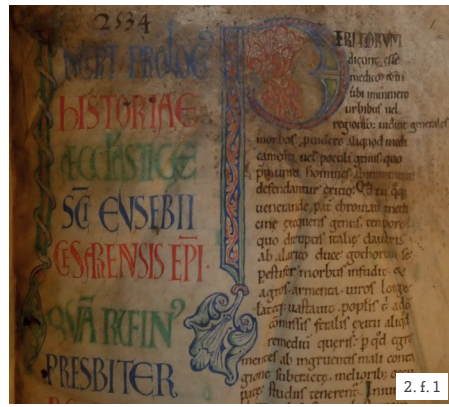 2534
INCIPIT PROLOG᾽
hISTORIAE
ECCLESIASTICE
SC̄I EVSEBII
CESARIENSIS EP̄I·
QVĀ RVFIN᾽
PRESBITER
PERITORVM
dicunt esse
medicorum
ubi imminere
urbibus uel
regionibus uiderint generales
morbos · prouidere aliquod medi
camenti uel poculi genus quo
premuniti homines ab imminente
defendantur exitio. Qd̄ tu quoq;
uenerande pat̄ chromati medi
cine exequens genus tempore
quo diruptis italię claustris
ab alarico duce gothorum se
pestifer morbus infudit &
agros armenta uiros longe
lateq; uastauit · populis t̄ a dō
commissis feralis exitii aliqd̄
remedium querens p̄ qd̄ ęgrę
mentes ab ingruentis mali conta
gione subtractę · meliorib; occu
patę studiis tenerent̄. Iniun
2. f. 1